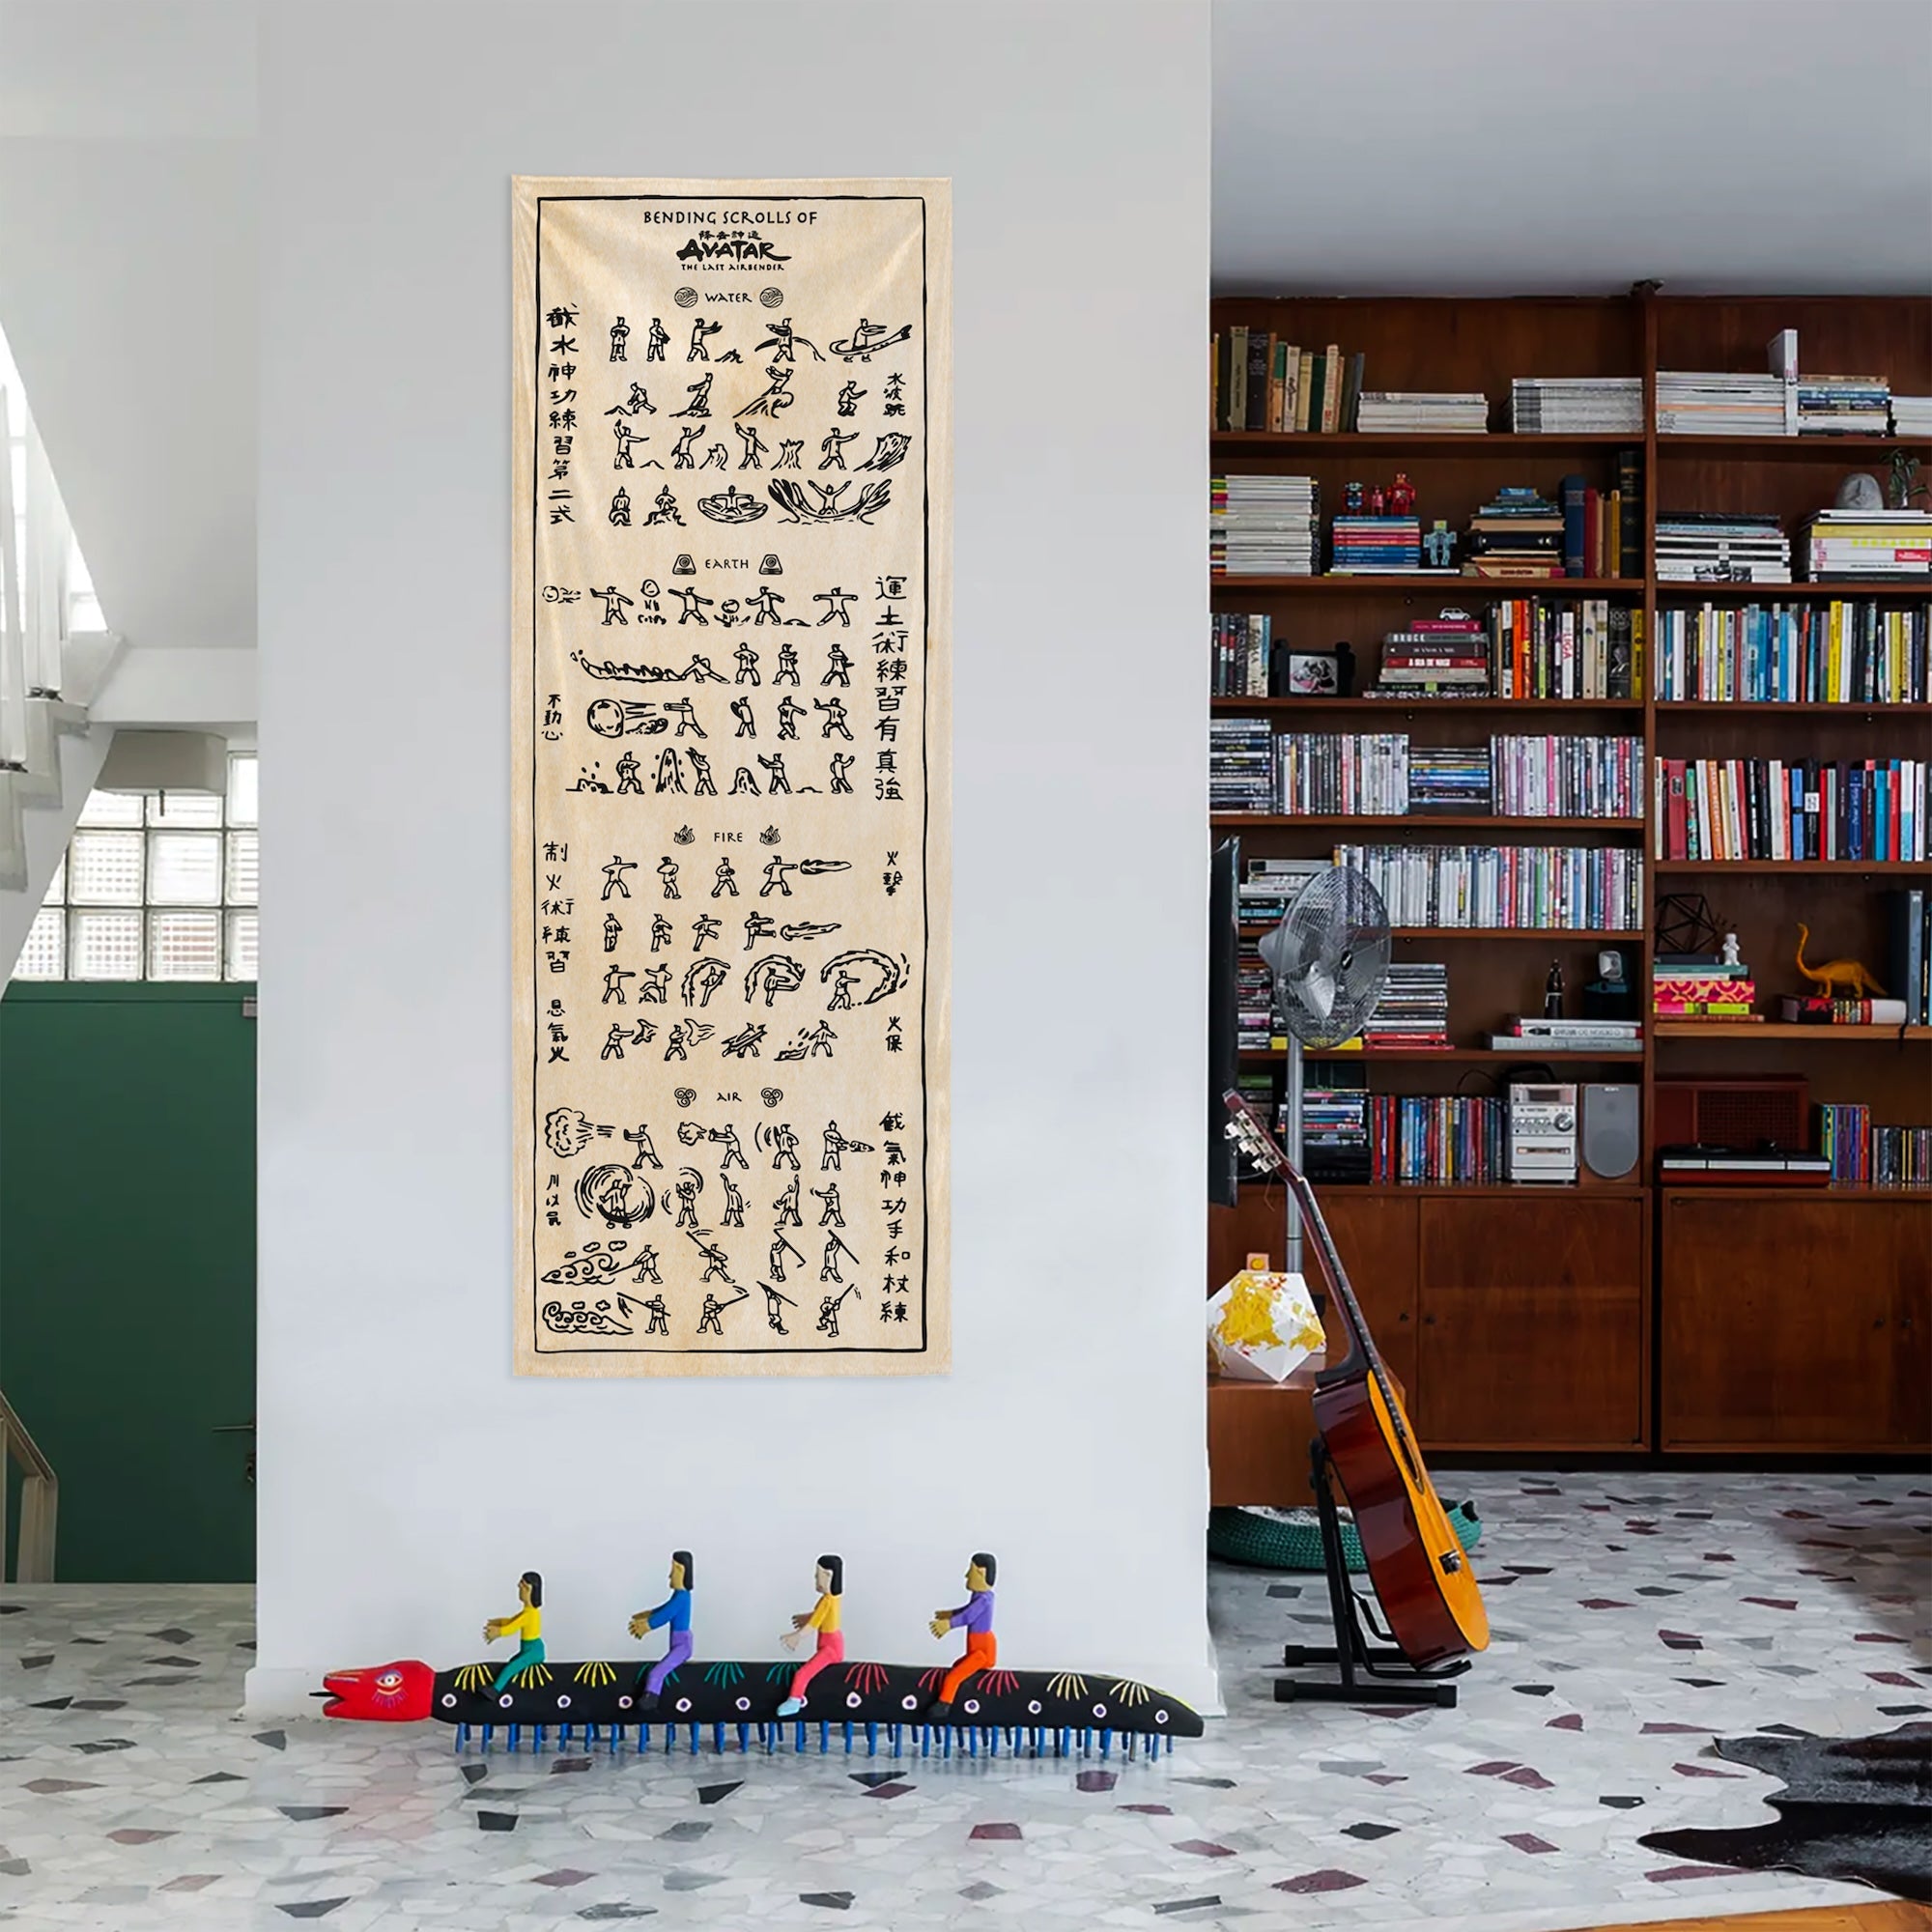 BENDING SCROLLS OF
降去神通
AVATAR
THE LAST AIRBENDER
WATER
截水神功練習第二式
水波跳
EARTH
運土術練習有真強
不動心
FIRE
制火術練習
火擊
火保
AIR
截氣神功手和杖練